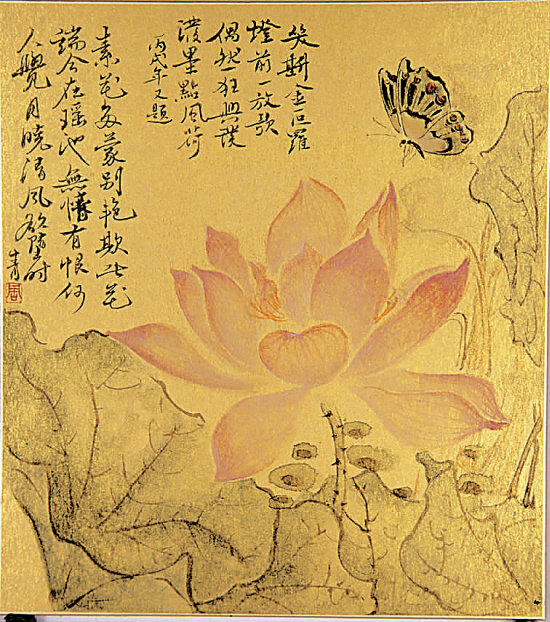 笑斟金叵羅
燈前一放歌
偶然狂興發
潑墨點風荷
丙戌年又題
素花多蒙别艳欺此花
端合在瑶池無情有恨何
人覺月曉清風欲墮時
青
周